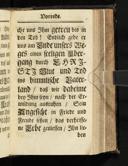 Vorrede.
che uns Ihm getreu bis in
den Tod! Entlich gebe er
uns am Ende unsers We-
ges einen seeligen Uber-
gang durch CHRI-
STI Blut und Tod
ins himmlische Vater-
land / daß wir daheime
bey Ihm seyn / nach der Er-
weckung aufstehen / Sein
Angesicht in Friede und
Freude sehen / das
Leben genießen / Ihn lo-
ben